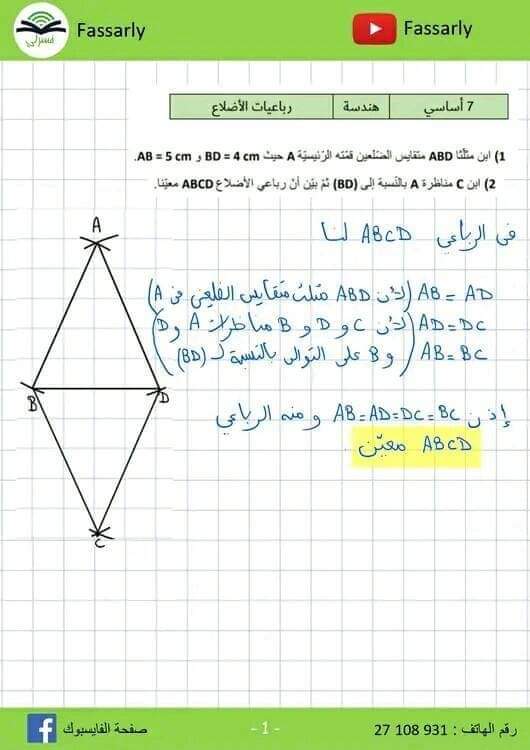 Fassarly
Fassarly
فسرلي
7 أساسي
هندسة
رباعيات الأضلاع
1) ابن مثلّثا ABD متقايس الضّلعين قمّته الرّئيسيّة A حيث BD = 4 cm و AB = 5 cm.
2) ابن C مناظرة A بالنّسبة إلى (BD) ثمّ بيّن أنّ رباعي الأضلاع ABCD معيّنا.
في الرباعي ABCD لنا
AB = AD (لأن ABD مثلث متقايس الضلعين في A)
AD = DC (لأن C و D و B مناظرات A و D
AB = BC و B على التوالي بالنسبة لـ (BD))
إذن AB=AD=DC=BC و منه الرباعي
ABCD معيّن.
A
B
D
C
صفحة الفايسبوك
- 1 -
رقم الهاتف : 931 108 27